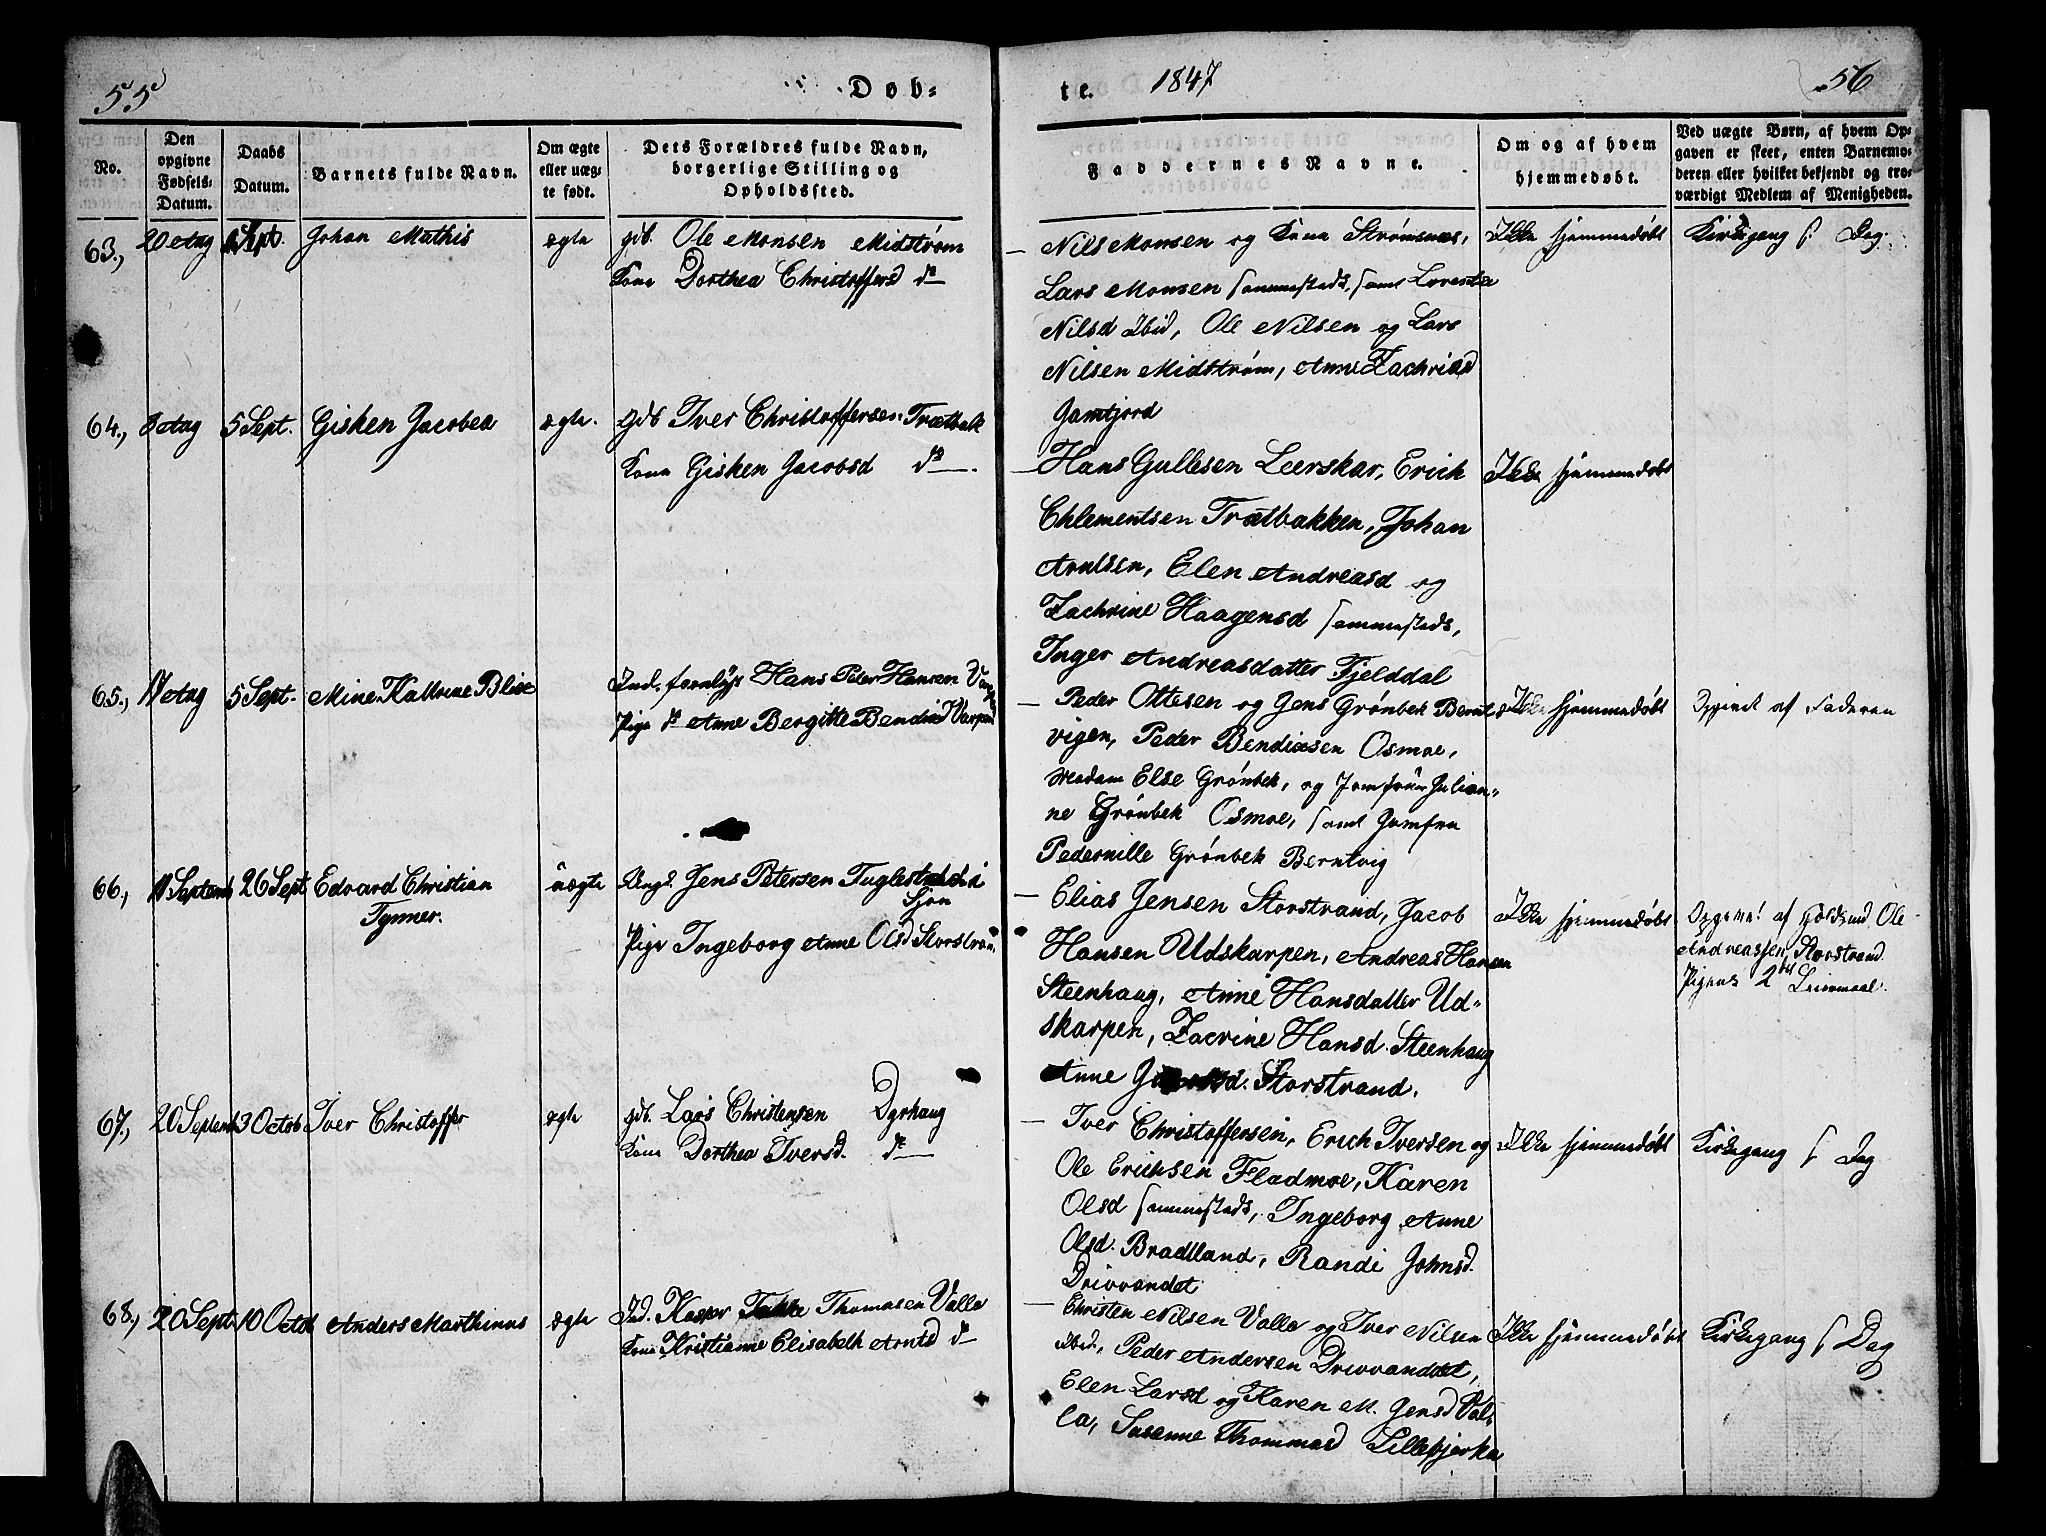 55
Døb-
No.
Den opgivne Fødsels-Datum.
Daabs Datum.
Barnets fulde Navn.
Om ægte eller uægte født.
Dets Forældres fulde Navn, borgerlige Stilling og Opholdsfted.
63., 20 Aug 5 Sept. Johan Mathis ægte gdb. Ole Monsen Midstrøm
Kone Dorthea Christoffersd do
64., Aug 5 Sept. Gisken Jacobea ægte. Gdb Iver Christoffersen Trætbak
Kone Gisken Jacobsd do
65., Aug 5 Sept. Mine Kathrine Blix Ind. Hans Peter Hansen
Pige Anne Bergitte
66., Septemb 26 Sept Edvard Christian uægte Ungk. Jens Petersen Fuglestrand i
Tynner. Sjon
Pige Ingeborg Anne Olsd Storstran
67., 20 Septemb 3 Octob Iver Christoffer ægte gdb. Lars Christensen Dyrhaug
Kone Dorthea Iversd. do
68., 20 Sept. 10 Octob Anders Marthinus ægte Ind. Thomasen Valla
Kone Kristianne Elisabeth Arntsd do
te. 1847
56
Faddernes Navne.
Om og af hvem hjemmedøbt.
Ved uægte Børn, af hvem Opgaven er skeet, enten Barnemoderen eller hvilket bekjendt og troværdigt Medlem af Menigheden.
Nils Monsen og Kone Strømsnæs, Ikke hjemmedøbt Kirkegang s. Dag.
Lars Monsen sammesteds, samt Lorentse
Nilsd Ibid, Ole Nilsen og Lars
Nilsen Midstrøm, Anne Zachrisd
Hans Gullesen Leerskar, Erich Ikke hjemmedøbt
Chlementsen Trætbakken, Johan
Arntsen, Elen Andreasd og
Zachrine Haagensd sammesteds,
Inger Andreasdatter Fjelddal
Peder Ottesen og Jens Grønbek Bernt Ikke hjemmedøbt Opgivet af Faderen
vigen, Peder Bendixsen Osmoe,
Madam Else Grønbek, og Jomfrue Julian-
ne Grønbek Osmoe, samt Jomfru
Pedernille Grønbek Berntvig
Elias Jensen Storstrand, Jacob Ikke hjemmedøbt Opgivet af Ole
Hansen Udskarpen, Andreas Hansen Andreassen, Storstrand.
Steenhaug, Anne Hansdatter Ud- Pigens 2det Leiermaal.
skarpen, Zacrine Hansd. Steenhaug
Anne Storstrand.
Iver Christoffersen, Erich Iversen og Ikke hjemmedøbt Kirkegang s Dag
Ole Erichsen Fladmoe, Karen
Olsd sammesteds, Ingeborg Anne
Olsd. Bradtland, Randi Johnsd.
Drivvandet
Christen Nilsen Valla og Iver Nilsen Ikke hjemmedøbt Kirkegang s Dag
Ibid., Peder Andersen Drivvandet,
Elen Larsd og Karen M. Jensd Val-
la, Susanne Thommasd Lillebjerka